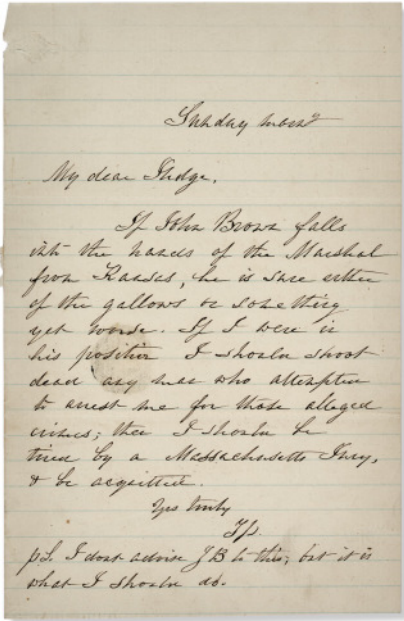 Sunday morng
My dear Judge,
If John Brown falls
into the hands of the Marshal
from Kansas, he is sure either
of the gallows or something
yet worse. If I were in
his position I should shoot
dead any man who attempted
to arrest me for those alleged
crimes; then I should be
tried by a Massachusetts Jury,
& be acquitted.
Yrs truly
T.P.
P.S. I dont advise JB to this, but it is
what I should do.